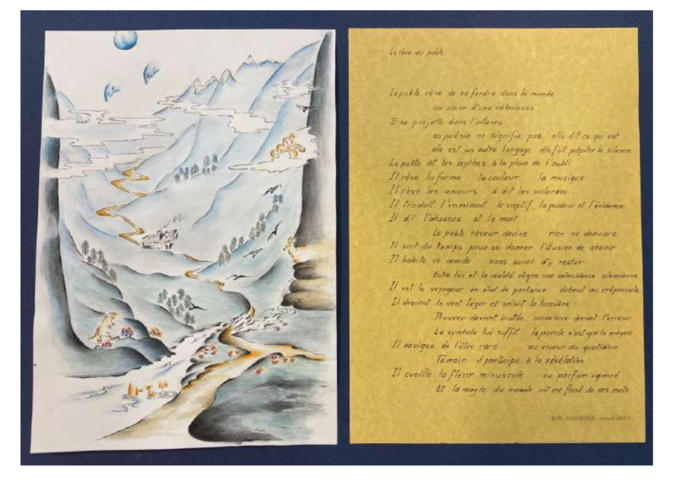 Le rêve du poète
Le poète rêve de se fondre dans le monde
au cœur d'une nébuleuse
Il se projette dans l'ailleurs
sa poésie ne signifie pas elle dit ce qui est
elle est un autre langage elle fait palpiter le silence
Le poète dit les mythes à la place de l'oubli
Il rêve la forme la couleur la musique
Il rêve les amours il dit les violences
Il traduit l'imminent le captif la pudeur et l'évidence
Il dit l'absence et la mort
Le poète rêveur devine rien ne demeure
Il sort du temps pour se donner l'illusion de choisir
Il habite ce monde sans souci d'y rester
Entre lui et la réalité règne une coïncidence silencieuse
Il est le voyageur en état de partance debout au crépuscule
Il devient le vent léger et saisit la lumière
Trouver devient inutile convaincre devient l'erreur
Le symbole lui suffit la parole n'est que le moyen
Il navigue de l'être rare au viveur du quotidien
Témoin il participe à la révélation
Il cueille la fleur minuscule au parfum ignoré
Et la magie du monde vit au fond de ses mots